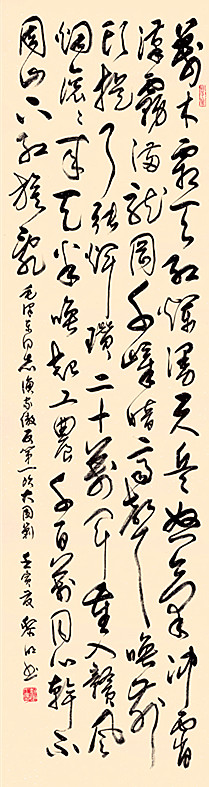 萬木霜天红爛漫天兵怒氣冲霄
漢霧满龍岡千嶂暗齊聲唤前
頭捉了張輝瓒二十萬军重入贛風
烟滚〻来天半唤起工農千百萬同心幹不
周山下红旗亂 毛澤东同志渔家傲反第一次大围剿 壬寅夏 书